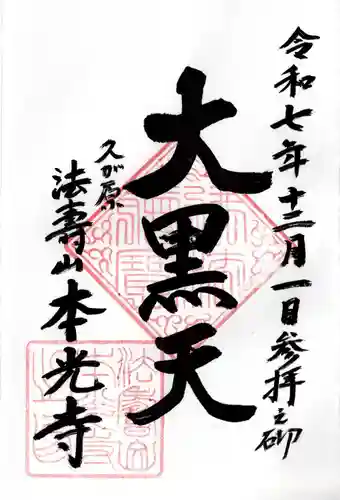 令和七年十二月一日参拝之砌
大黒天
久が原
法壽山本光寺